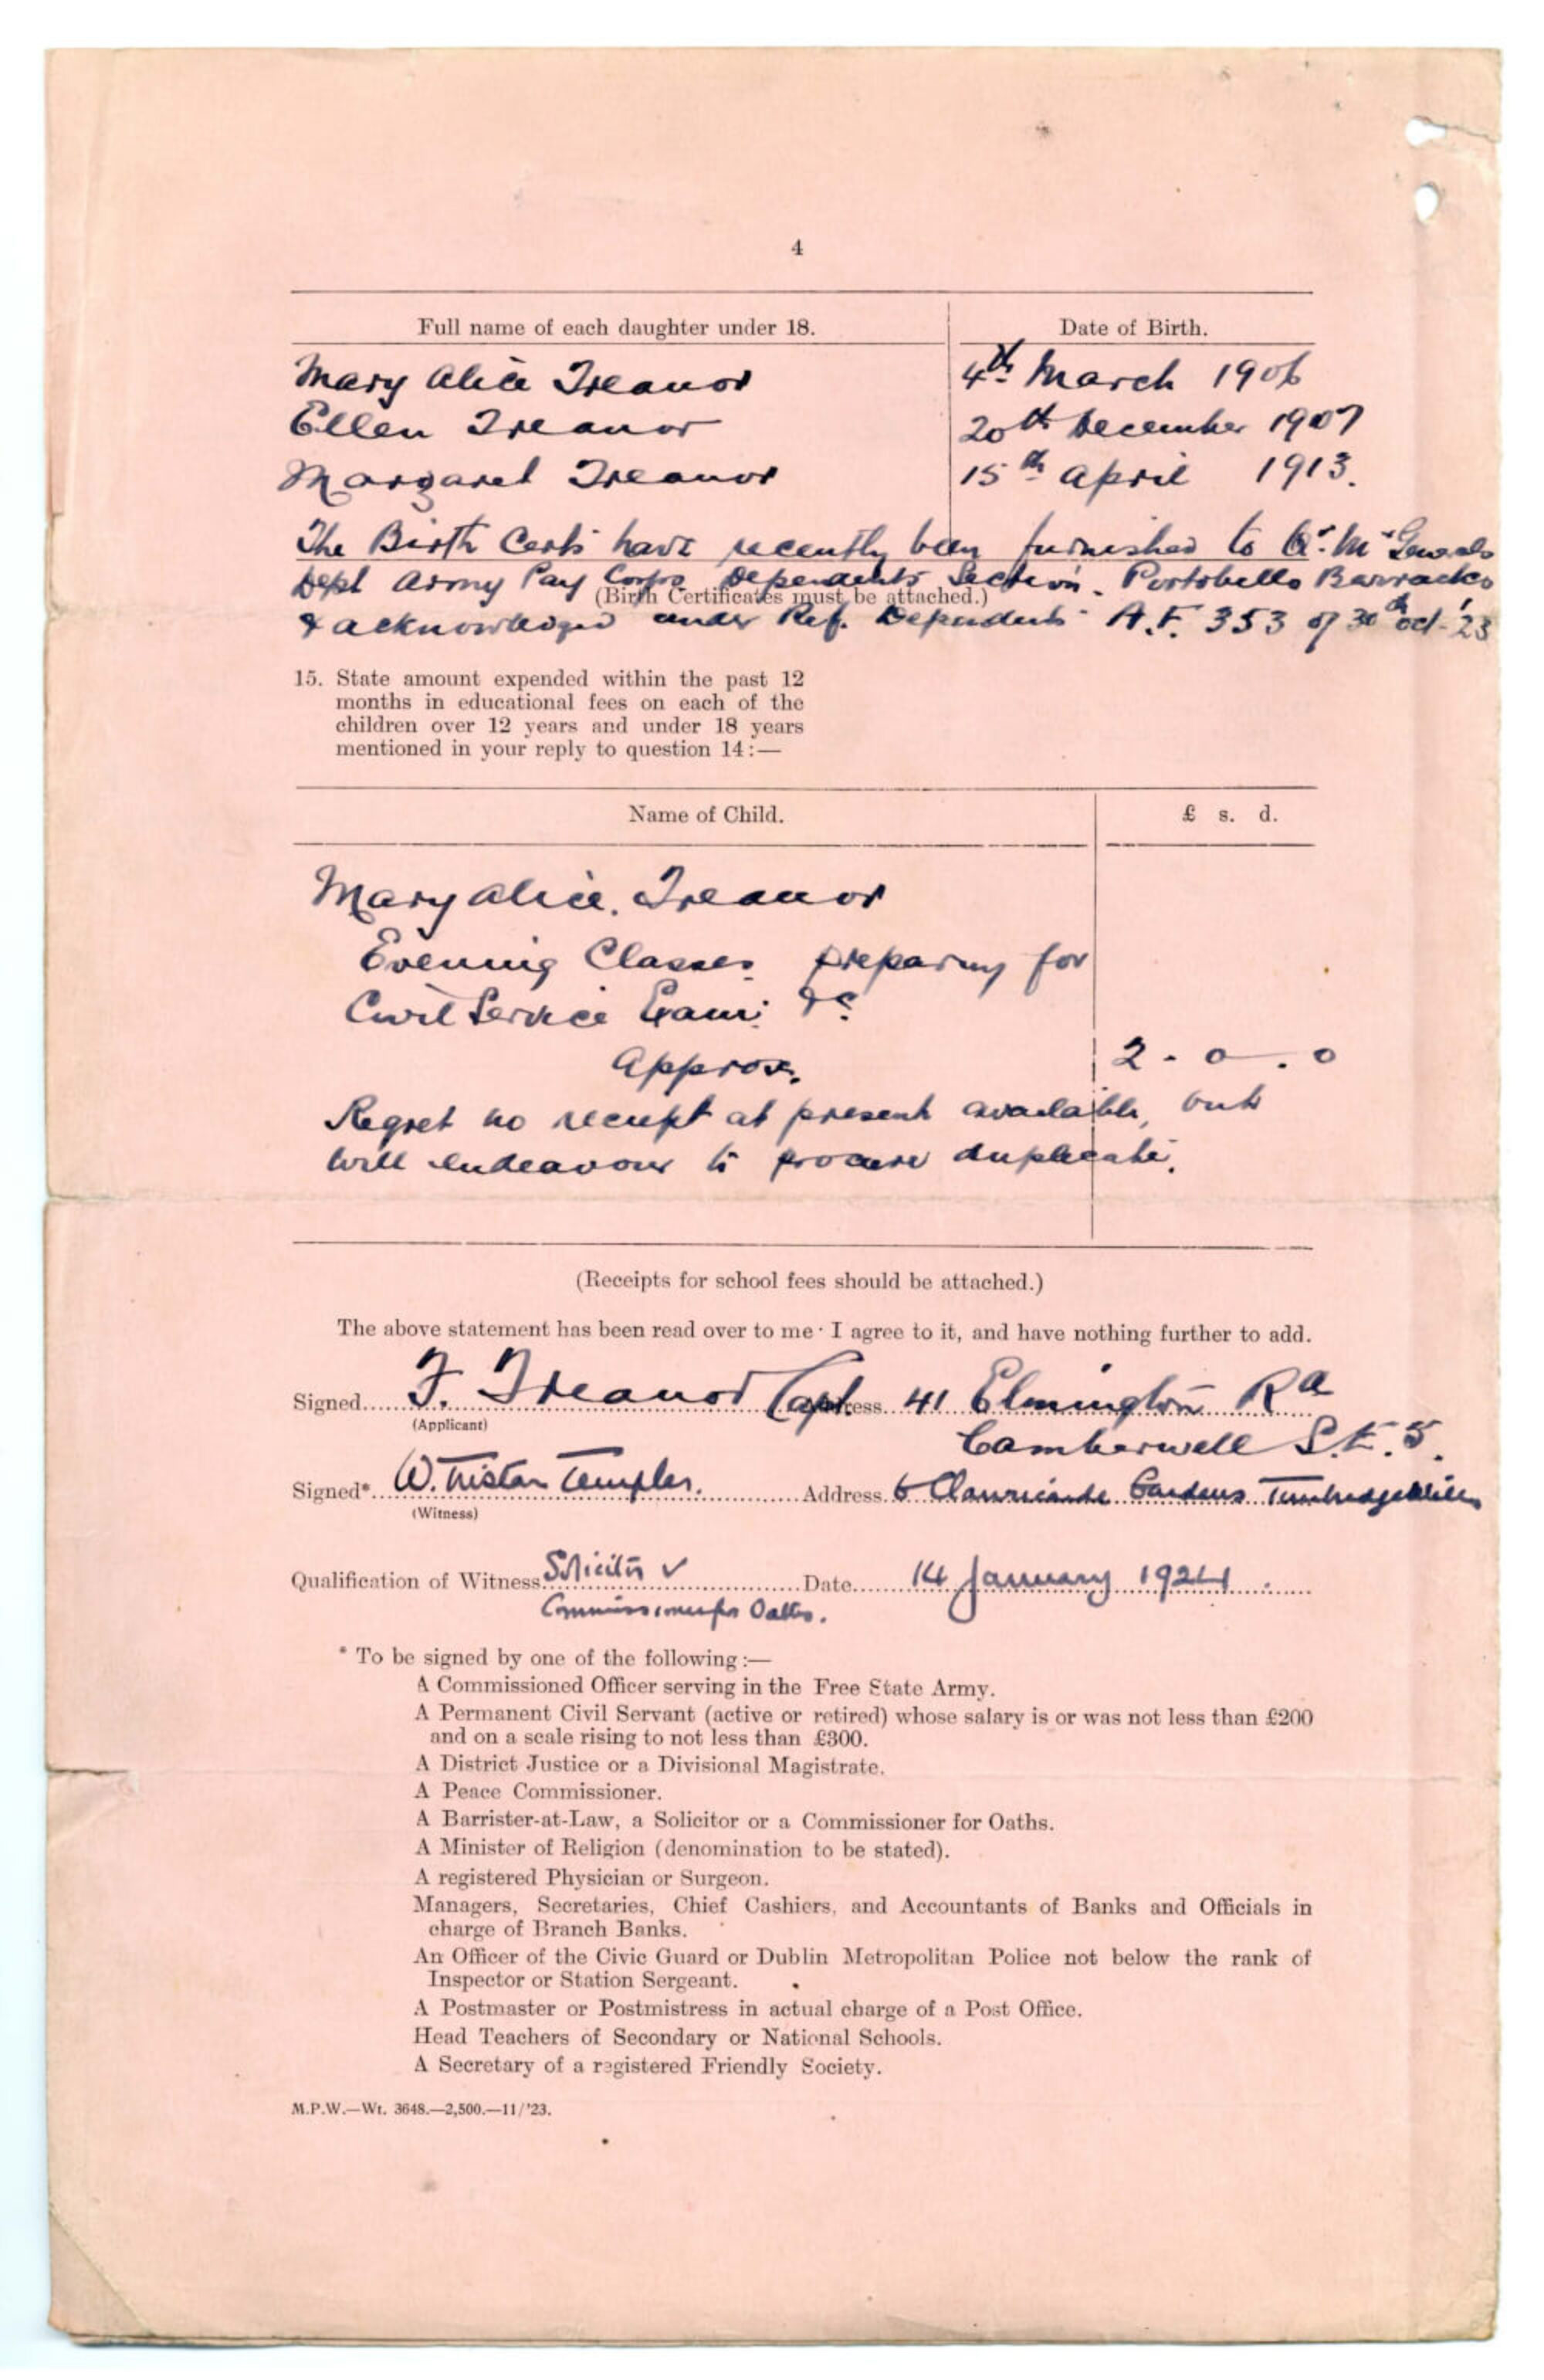 4
Full name of each daughter under 18. Date of Birth.
Mary Alice Treanor 4th March 1906
Ellen Treanor 20th December 1907
Margaret Treanor 15th April 1913.
The Birth Certs have recently been furnished to Qr. Mr Generals
Dept Army Pay Corps Dependents Section. Portobello Barracks
(Birth Certificates must be attached.)
& acknowledged under Ref. Dependents A.F. 353 of 30th Oct '23
15. State amount expended within the past 12
months in educational fees on each of the
children over 12 years and under 18 years
mentioned in your reply to question 14:—
Name of Child. £ s. d.
Mary Alice. Treanor
Evening Classes preparing for
Civil Service Exam: &c.
Approx. 2 - 0 - 0
Regret no receipt at present available, but
will endeavour to procure duplicate.
(Receipts for school fees should be attached.)
The above statement has been read over to me · I agree to it, and have nothing further to add.
Signed F. Treanor Capt. Address 41 Elmington Rd
(Applicant) Camberwell S.E. 5.
Signed* W. Tristan Templer. Address 6 Clanricarde Gardens Tunbridge Wells
(Witness)
Qualification of Witness Solicitor Date 14 January 1924.
Commissioner for Oaths.
* To be signed by one of the following :—
A Commissioned Officer serving in the Free State Army.
A Permanent Civil Servant (active or retired) whose salary is or was not less than £200
and on a scale rising to not less than £300.
A District Justice or a Divisional Magistrate.
A Peace Commissioner.
A Barrister-at-Law, a Solicitor or a Commissioner for Oaths.
A Minister of Religion (denomination to be stated).
A registered Physician or Surgeon.
Managers, Secretaries, Chief Cashiers, and Accountants of Banks and Officials in
charge of Branch Banks.
An Officer of the Civic Guard or Dublin Metropolitan Police not below the rank of
Inspector or Station Sergeant.
A Postmaster or Postmistress in actual charge of a Post Office.
Head Teachers of Secondary or National Schools.
A Secretary of a registered Friendly Society.
M.P.W.—Wt. 3648.—2,500.—11/'23.